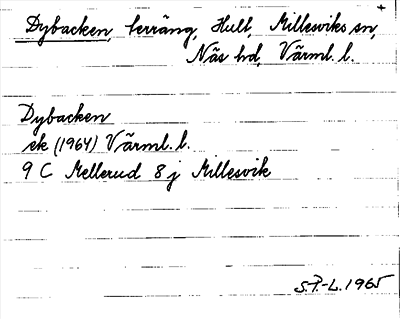 +
Dybacken, terräng, Hult, Millesviks sn,
Näs hd, Värml. l.
Dybacken
ek (1964) Värml. l.
9 C Mellerud 8 j Millesvik
S.P.-L. 1965